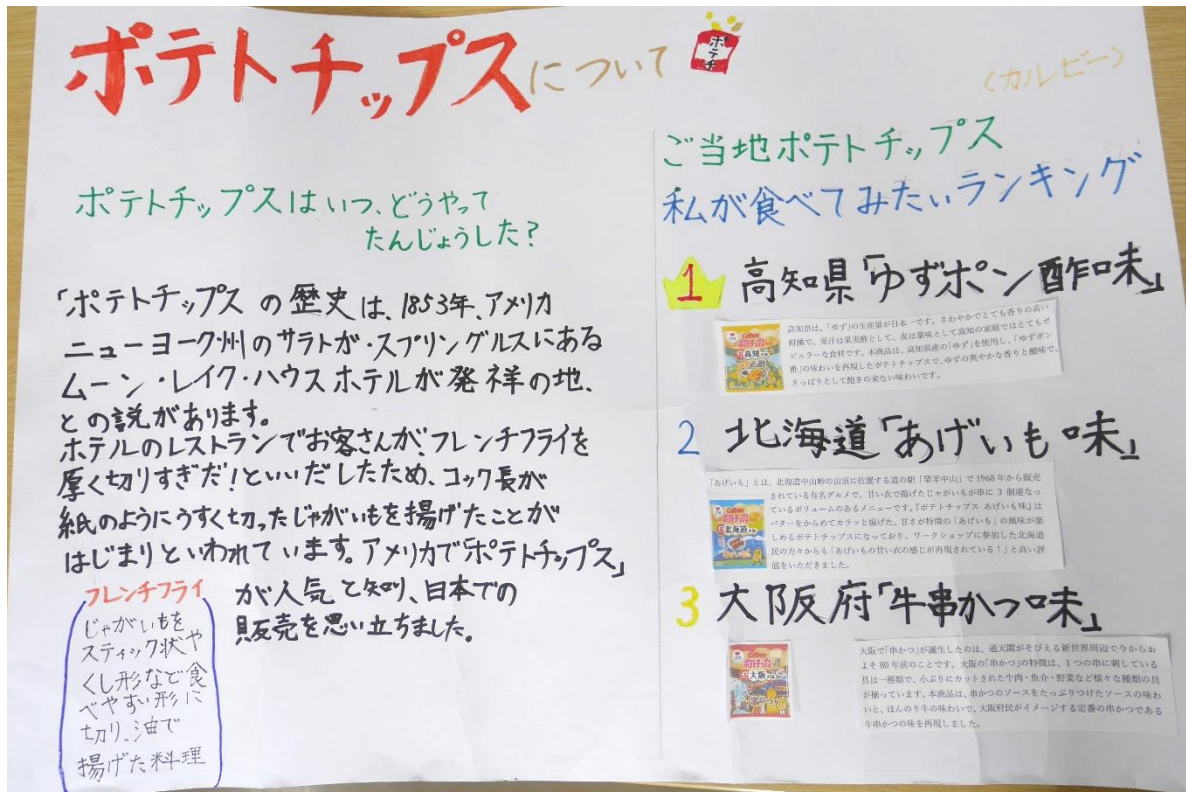 ポテトチップスについて
ポテチ
〈カルビー〉
ポテトチップスはいつ、どうやって
たんじょうした?
「ポテトチップスの歴史は、1853年、アメリカ
ニューヨーク州のサラトガ・スプリングルスにある
ムーン・レイク・ハウスホテルが発祥の地、
との説があります。
ホテルのレストランでお客さんが、フレンチフライを
厚く切りすぎだ!といいだしたため、コック長が
紙のようにうすく切ったじゃがいもを揚げたことが
はじまりといわれています。アメリカで「ポテトチップス」
が人気と知り、日本での
販売を思い立ちました。
フレンチフライ
じゃがいもを
スティック状や
くし形などで食
べやすい形に
切り、油で
揚げた料理
ご当地ポテトチップス
私が食べてみたいランキング
1 高知県「ゆずポン酢味」
高知県は、「ゆず」の生産量が日本一です。さわやかでとても香りの高い
柑橘で、果汁は果実酢として、皮は薬味として高知の家庭ではとてもポ
ピュラーな食材です。本商品は、高知県産の「ゆず」を使用し、「ゆずポン
酢」の味わいを再現したポテトチップスで、ゆずの爽やかな香りと酸味で、
さっぱりとして飽きの来ない味わいです。
Calbee
ポテトチップス
高知
2 北海道「あげいも味」
「あげいも」とは、北海道中山峠の山頂に位置する道の駅「望羊中山」で1968年から販売
されている有名グルメで、甘い衣で揚げたじゃがいもが串に3個連なっ
ているボリュームのあるメニューです。『ポテトチップス あげいも味』は
バターをからめてカラッと揚げた、甘さが特徴の「あげいも」の風味が楽
しめるポテトチップスになっており、ワークショップに参加した北海道
民の方々からも「あげいもの甘い衣の感じが再現されている!」と高い評
価をいただきました。
Calbee
ポテトチップス
北海道
3 大阪府「牛串かつ味」
大阪で「串かつ」が誕生したのは、通天閣がそびえる新世界周辺で今からお
よそ80年前のことです。大阪の「串かつ」の特徴は、1つの串に刺している
具は一種類で、小ぶりにカットされた牛肉・魚介・野菜など様々な種類の具
が揃っています。本商品は、串かつのソースをたっぷりつけたソースの味わ
いと、ほんのり牛の味わいで、大阪府民がイメージする定番の串かつである
牛串かつの味を再現しました。
Calbee
ポテトチップス
大阪